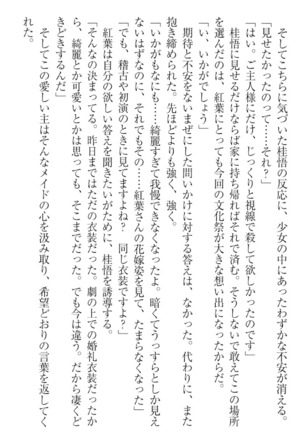 そしてこちらに気づいた桂悟の反応に、少女の中にあったわずかな不安が消える。
「見せたかったのって……それ？」
「はい。ご主人様にだけ、じっくりと視線で殺して欲しかったのです」
桂悟に見せるだけならば家に持ち帰ればそれで済む。そうしないで敢えてこの場所
を選んだのは、紅葉にとっても今回の文化祭が大きな想い出になったからだ。
「い、いかがでしょう」
期待と不安をないまぜにした問いかけに対する答えは、なかった。代わりに、また
抱き締められた。先ほどよりも強く、強く。
「いかがもなにも……綺麗すぎて我慢できなくなったよ。暗くてうっすらとしか見え
ないはずなのに、それでもその……紅葉さんの花嫁姿を見て、たまらなくなった」
「でも、稽古や初演のときに見てますよね？　同じ衣装ですよ？」
紅葉は自分の欲しい答えを聞きたいがために、桂悟を誘導する。
「そんなの決まってる。昨日まではただの衣装だった。劇の上での婚礼衣装だったか
ら、綺麗とか可愛いとかは思っても、そこまでだった。でも今は違う。だから凄くど
きどきするんだ」
そしてこの愛しい主はそんなメイドの心を汲み取り、希望どおりの言葉を返してく
れた。